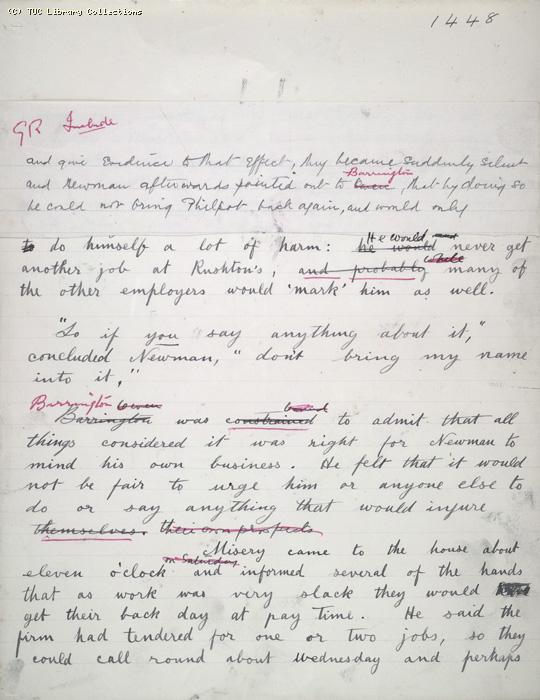 (C) TUC Library Collections
1448
GR Include
and give Evidence to that Effect, they became suddenly silent
Barrington
and Newman afterwards pointed out to Owen, that by doing so
he could not bring Philpot back again, and would only
He would
to do himself a lot of harm: he would never get
another job at Rushton's, and probably many of
the other employers would 'mark' him as well.
"So if you say anything about it,"
concluded Newman, "don't bring my name
into it."
Barrington Owen
Barrington was constrained to admit that all
things considered it was right for Newman to
mind his own business. He felt that it would
not be fair to urge him or anyone else to
do or say anything that would injure
themselves. their own prospects
Misery came to the house about
on Saturday
eleven o'clock and informed several of the hands
that as work was very slack they would
get their back day at pay time. He said the
firm had tendered for one or two jobs, so they
could call round about wednesday and perhaps